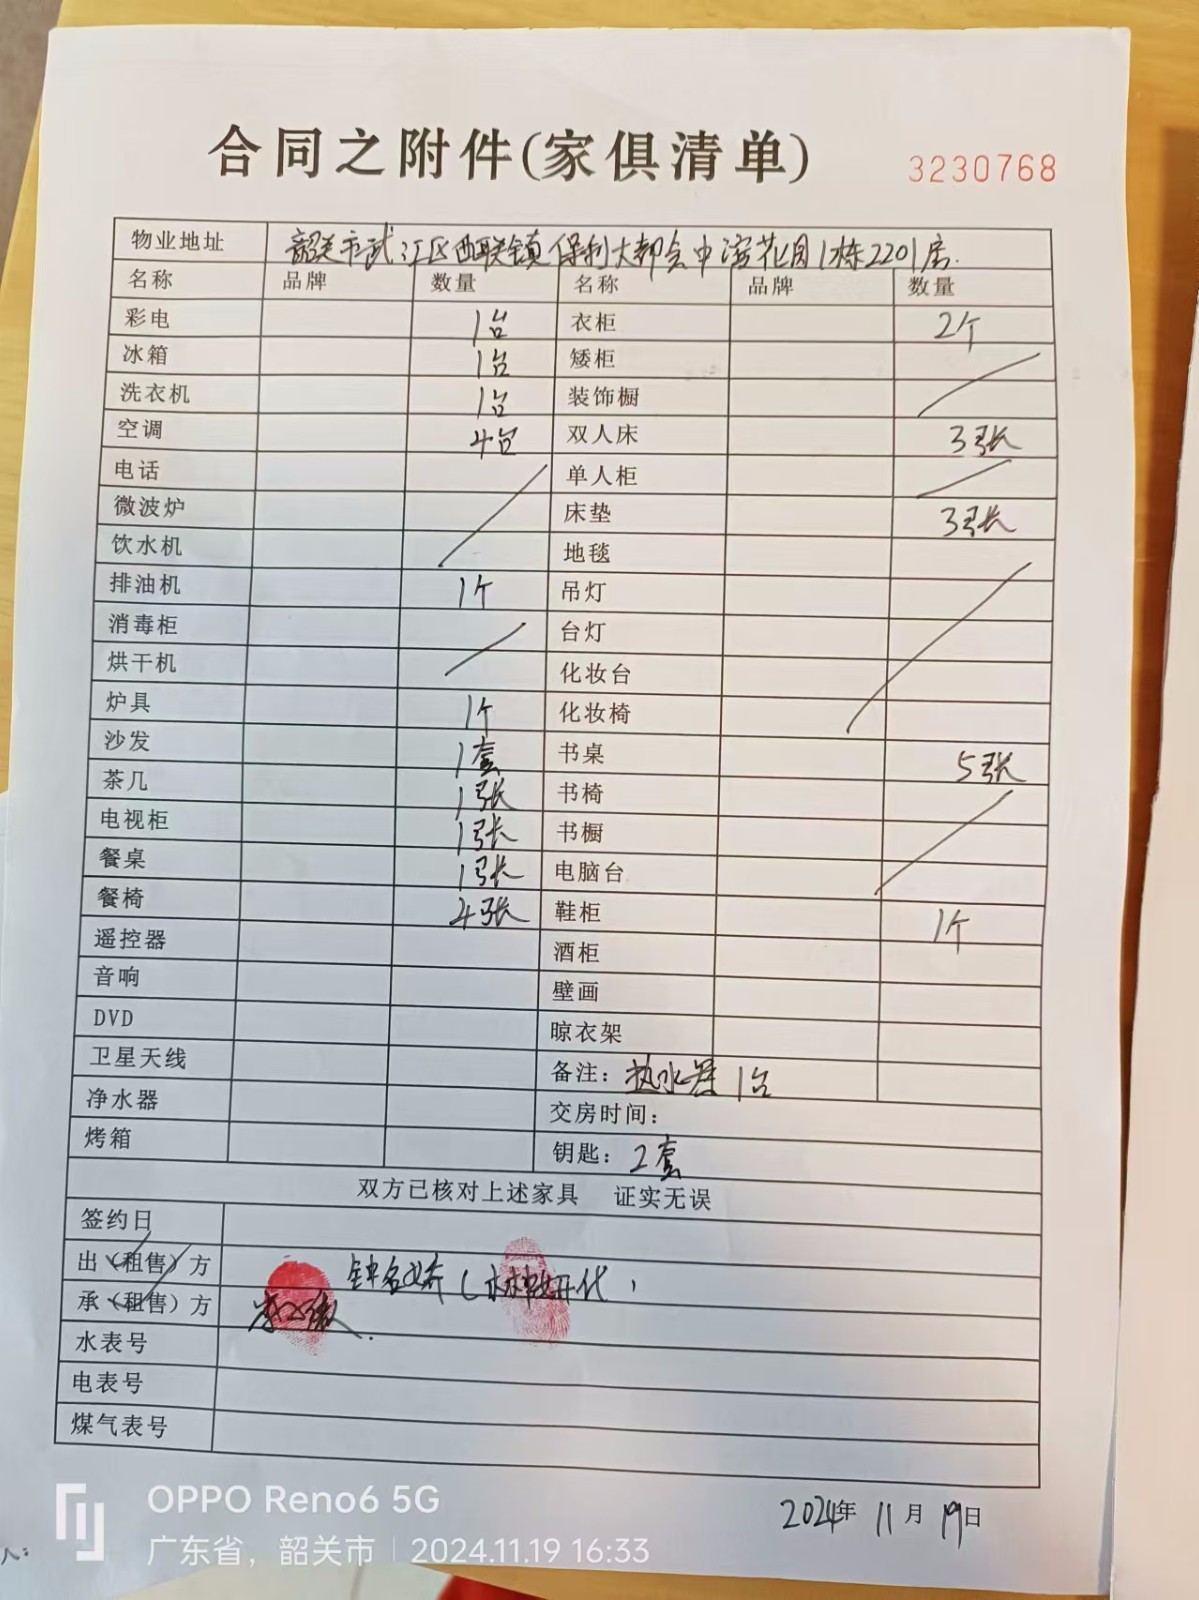 合同之附件(家俱清单)
3230768
物业地址 韶关市武江区西联镇保利大都会中滨花园1栋2201房.
名称 品牌 数量 名称 品牌 数量
彩电 1台 衣柜 2个
冰箱 1台 矮柜
洗衣机 1台 装饰橱
空调 4台 双人床 3张
电话 单人柜
微波炉 床垫 3张
饮水机 地毯
排油机 1个 吊灯
消毒柜 台灯
烘干机 化妆台
炉具 1个 化妆椅
沙发 1套 书桌 5张
茶几 1张 书椅
电视柜 1张 书橱
餐桌 1张 电脑台
餐椅 4张 鞋柜 1个
遥控器 酒柜
音响 壁画
DVD 晾衣架
卫星天线 备注：热水器 1台
净水器 交房时间：
烤箱 钥匙：2套
双方已核对上述家具 证实无误
签约日
出（租售）方
承（租售）方
水表号
电表号
煤气表号
2024年 11月 19日
OPPO Reno6 5G
广东省，韶关市 | 2024.11.19 16:33
人：